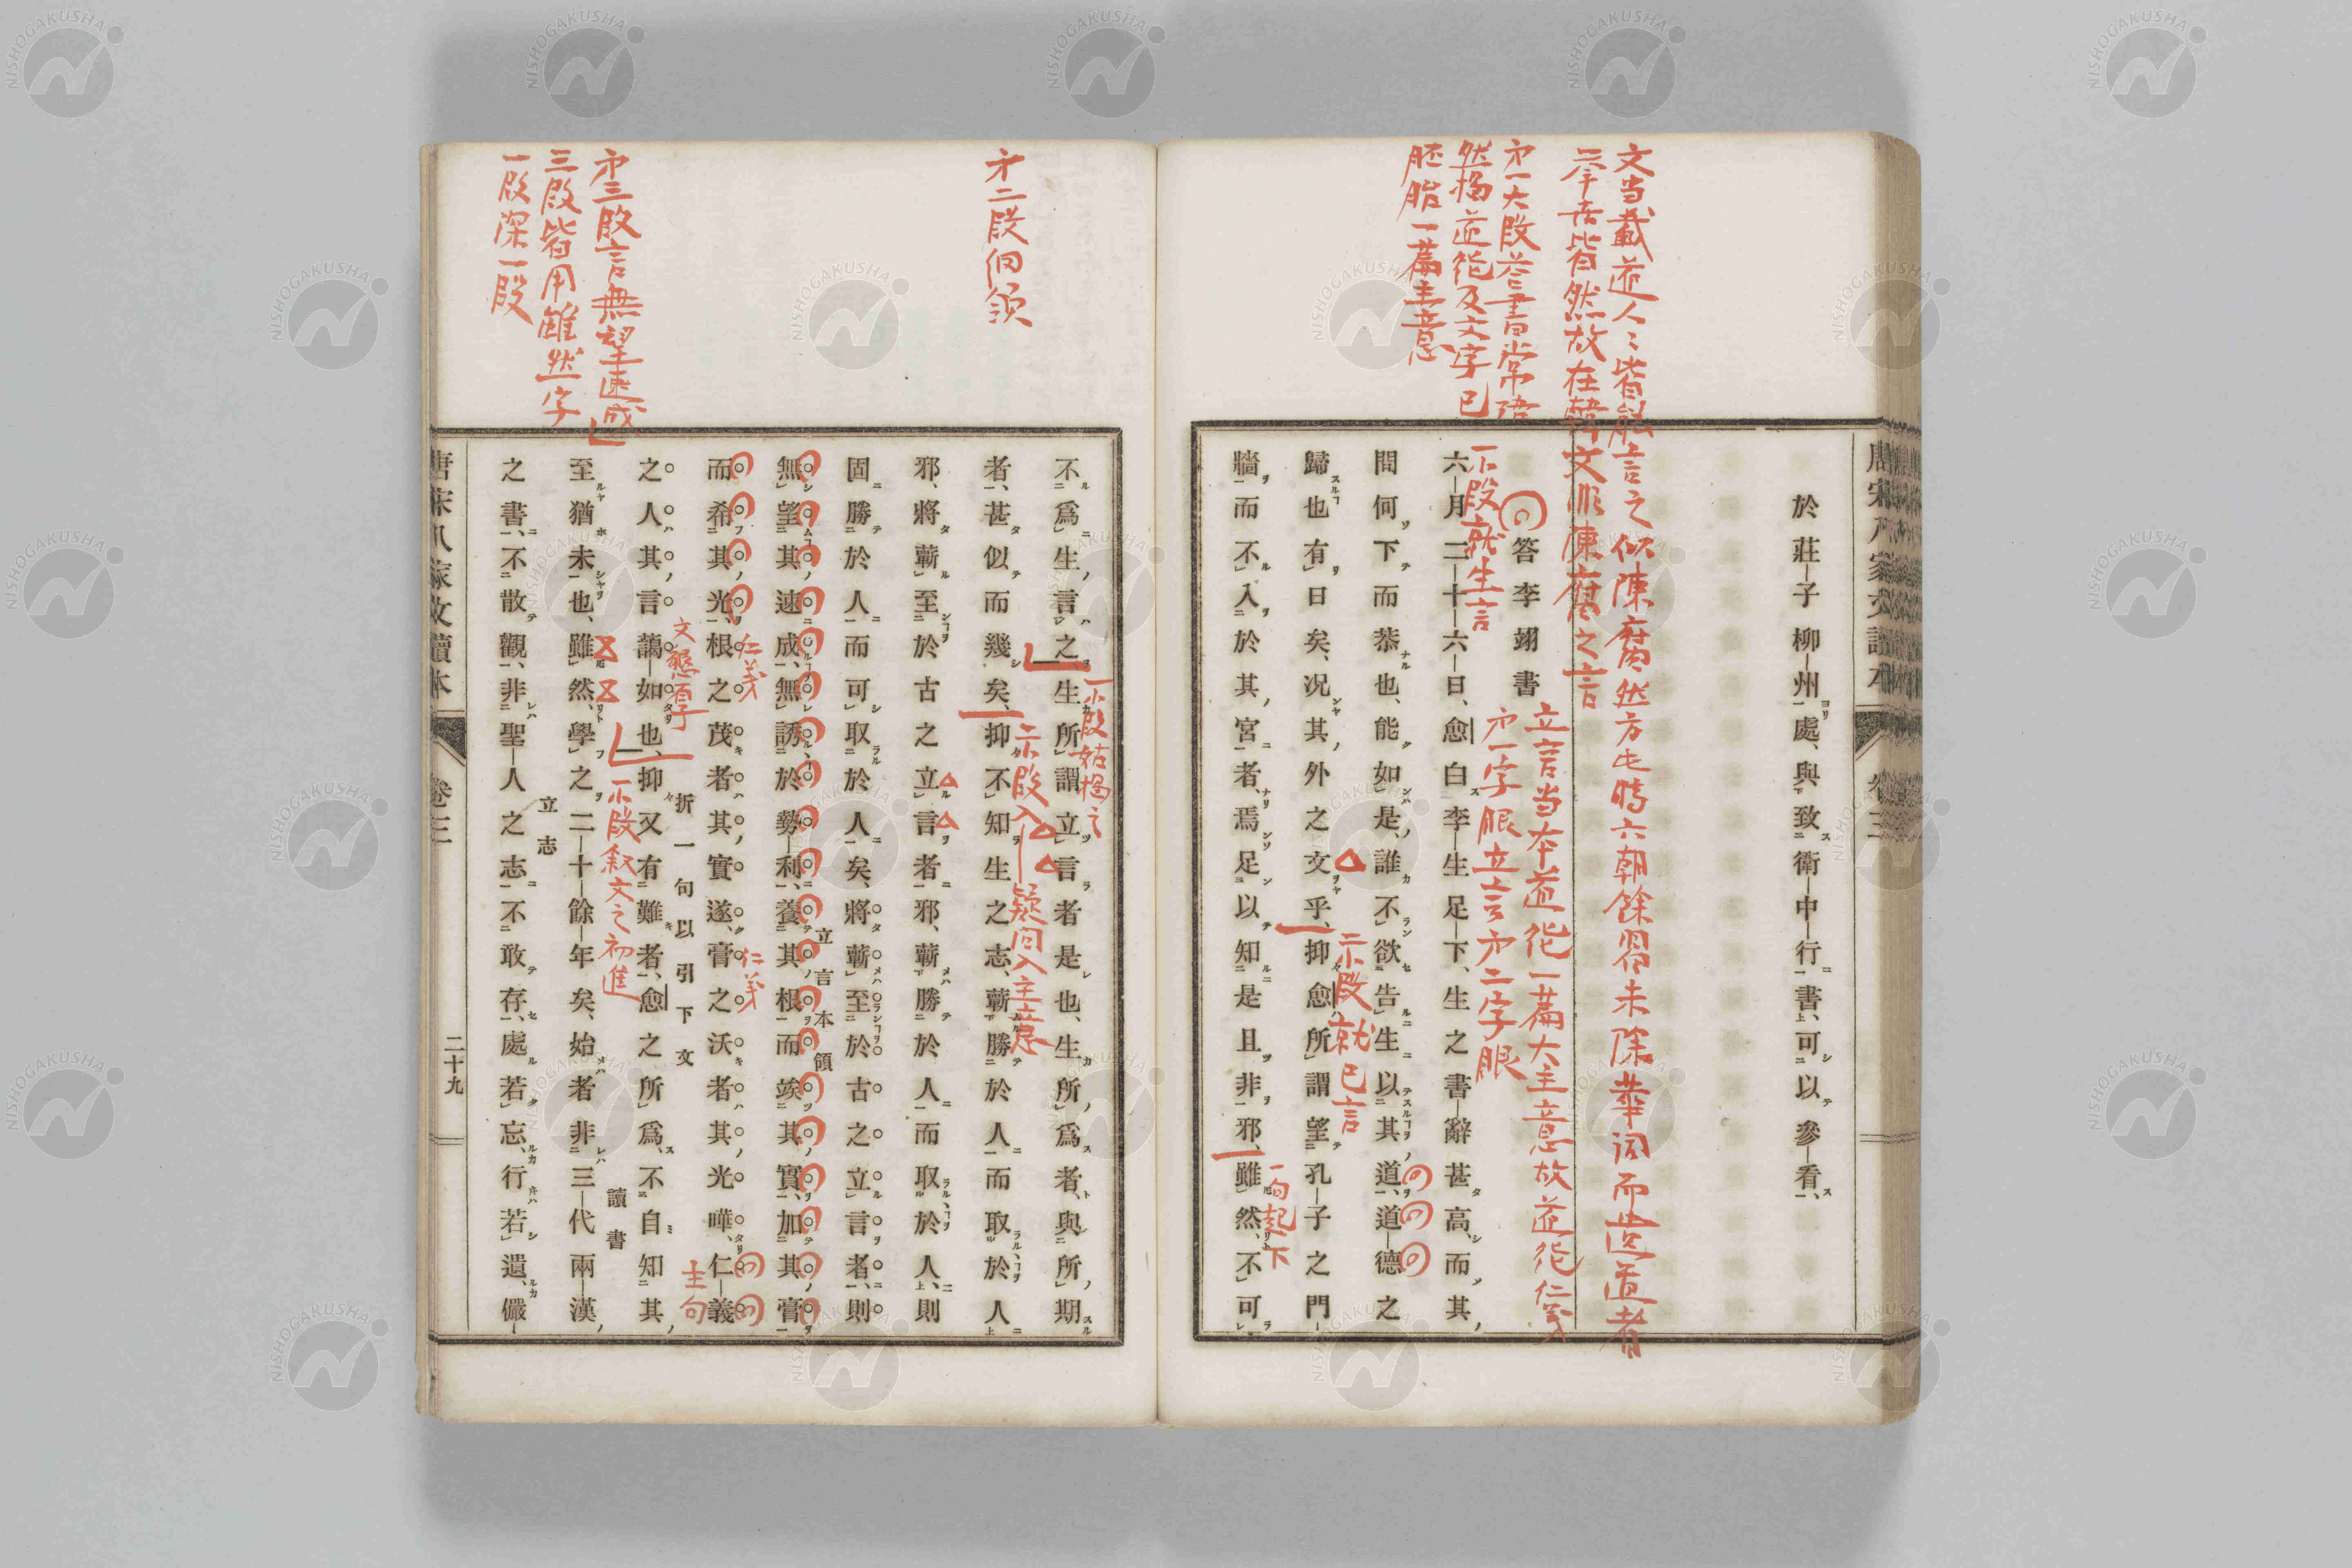 唐宋八家文讀本
卷三
於莊子柳州處、與致衛中行書、可以參看、
答李翊書
六月二十六日、愈白李生足下、生之書辭甚高、而其
問何下而恭也、能如是、誰不欲告生以其道、道德之
歸也有日矣、況其外之文乎、抑愈所謂望孔子之門
牆而不入於其宮者、焉足以知是且非邪、雖然、不可
文当載道人々皆能言之似陳腐然方此時六朝餘習未除華詞而
挙世皆然故在韓文非陳腐之言
立言当本道徳一篇大主意故道徳仁義
第一字眼立言第二字眼
第一大段答書常
然掲道徳及文字已
胚胎一篇主意
一小段就生言
二小段就已言
一句起下
不爲生言之、生所謂立言者是也、生所爲者、與所期
者、甚似而幾矣、抑不知生之志、蘄勝於人而取於人
邪、將蘄至於古之立言者邪、蘄勝於人而取於人、則
固勝於人而可取於人矣、將蘄至於古之立言者、則
立言本領
無望其速成、無誘於勢利、養其根而竢其實、加其膏
而希其光、根之茂者其實遂、膏之沃者其光曄、仁義
折一句以引下文
之人其言藹如也、抑又有難者、愈之所爲、不自知其
讀書
至猶未也、雖然、學之二十餘年矣、始者非三代兩漢
立志
之書、不敢觀、非聖人之志不敢存、處若忘、行若遺、儼
第二段
一小段
入主意
仁義
仁義
主句
第三段言無望速成
三段皆用雖然字
一段深一段
一小段叙文之初進
唐宋八家文讀本
卷三
二十九